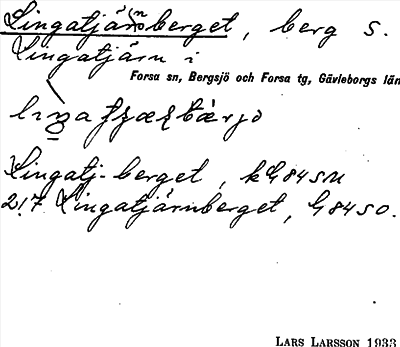 Lingatjärnsberget, berg S.
Lingatjärn i
Forsa sn, Bergsjö och Forsa tg, Gävleborgs län
Lingatj-berget, k G 84 SM
217 Lingatjärnberget, G 84 SO.
LARS LARSSON 1933